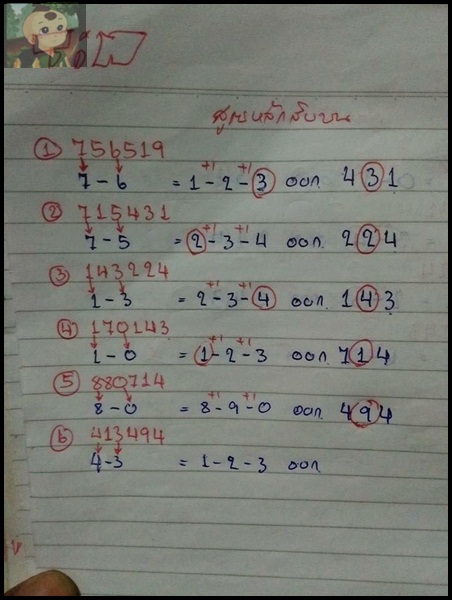 สูตรหลักสิบบน
① 756519
7 - 6 = 1 - 2 - 3 ออก 431
+1 +1
② 715431
7 - 5 = 2 - 3 - 4 ออก 224
+1 +1
③ 143224
1 - 3 = 2 - 3 - 4 ออก 143
+1 +1
④ 170143
1 - 0 = 1 - 2 - 3 ออก 714
+1 +1
⑤ 880714
8 - 0 = 8 - 9 - 0 ออก 494
+1 +1
⑥ 413494
4 - 3 = 1 - 2 - 3 ออก